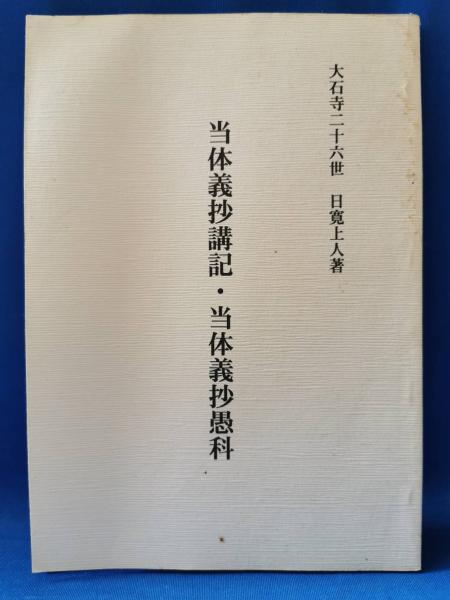 大石寺二十六世　日寛上人著
当体義抄講記・当体義抄愚科